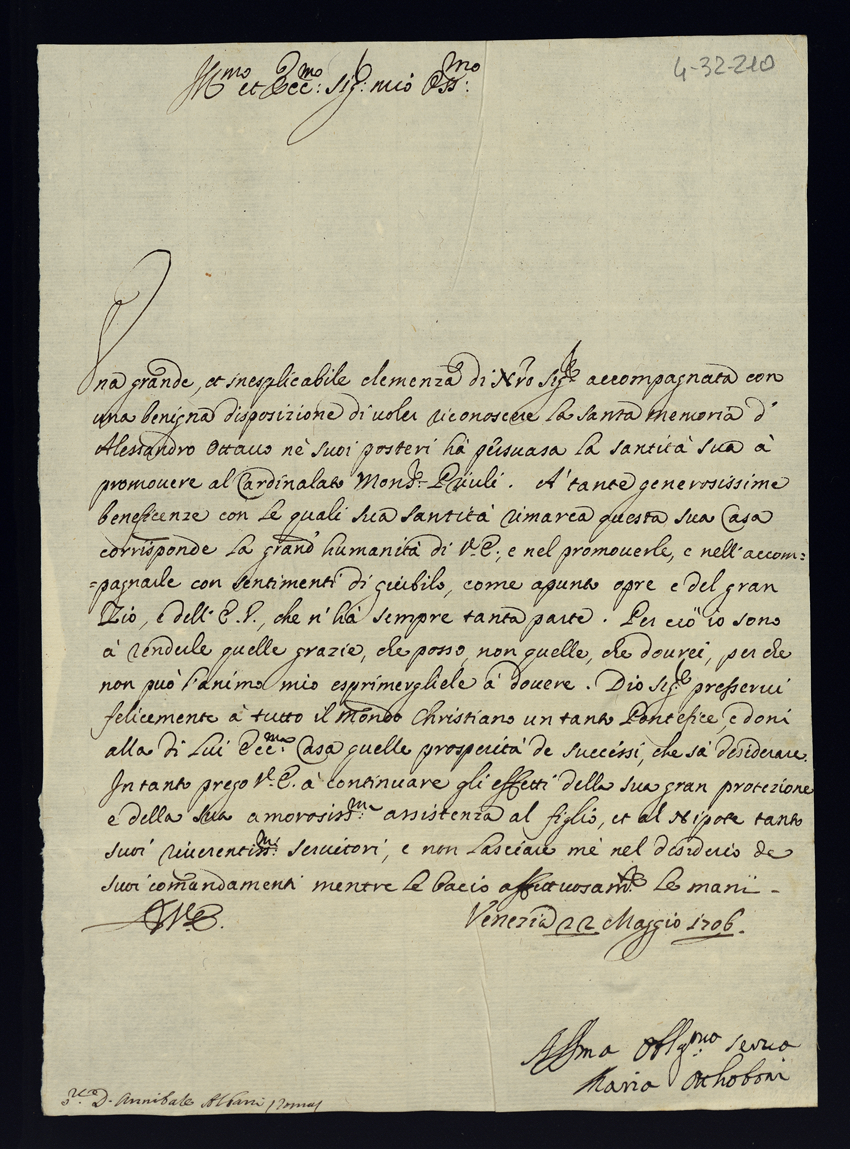 4-32-210
Ill:mo et Ecc:mo Sig: mio Oss:mo
Una grande, et inesplicabile clemenza di Nro Sig:re accompagnata con
una benigna disposizione di voler riconoscere la santa memoria d'
Alessandro Ottavo nè suoi posteri hà persuasa la santità sua à
promovere al Cardinalato Mons:r Priuli. A' tante generosissime
beneficenze con le quali sua santità rimarca questa sua Casa
corrisponde la grand' humanità di V.E:, e nel promoverle, e nell'accom:
=pagnarle con sentimenti di giubilo, come apunto opre e del gran
Zio, e dell'E.V., che n'hà sempre tanta parte. Per ciò io sono
à renderle quelle grazie, che posso, non quelle, che dovrei, per che
non può l'animo mio esprimergliele à dovere. Dio Sig:re presservi
felicemente à tutto il Mondo Christiano un tanto Pontefice, e doni
alla di lui Ecc:ma Casa quelle prosperità de successi, che sà desiderare.
In tanto prego V.E. à continuare gli effetti della sua gran protezione
e della sua amorosiss:ma assistenza al figlio, et al Nipote tanto
suoi riverentiss:mi servitori, e non lasciare mè nel desiderio de
suoi comandamenti mentre le bacio affettuosam:te le mani -
D V.E.
Venezia 22 Maggio 1706.
Aff:ma Obblig:ma Serva
Maria Otthoboni
D. Annibale Albani Roma